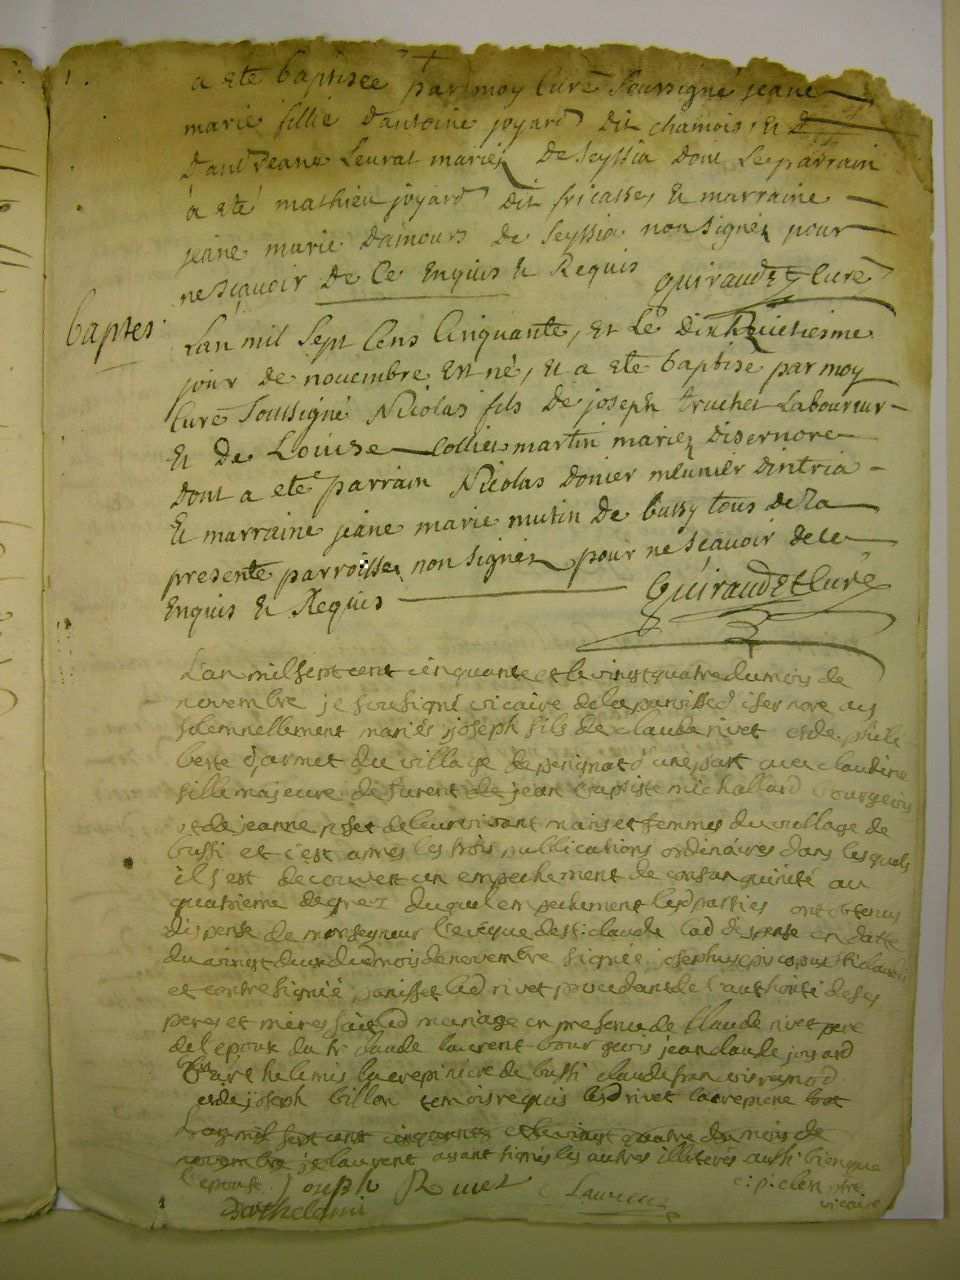 a eté baptisée par moy Curé Soussigné jeane
marie fillie d'antoine joyard dit chamois, et
Leurat mariez de Seyssia dont Le parrain
a eté mathieu joyard dit fricasse, et marraine
jeane marie damours de Seyssia non Signéz pour
ne Sçavoir De Ce Enquis et Requis Guiraudet Curé
baptes.
Lan mil Sept Cens Cinquante, et Le dix huictiesme
jour de novembre Est né, et a eté baptisé par moy
Curé Soussigné Nicolas fils De joseph truchet Laboureur
Et De Louise Colliet martin mariez Disernore
Dont a eté parrain Nicolas Donier meunier Dintria
Et marraine jeane marie mutin De bussy tous De La
presente parroisse non Signéz pour ne Scavoir de ce
Enquis et Requis Guiraudet Curé
L'an mil sept cent cinquante et le vingt quatre du mois de
novembre je soussigné vicaire de la paroisse d isernore ay
solemnellement mariés joseph fils de claude rivet et de phili
berte d'armet du village de perignat d'une part avec claudine
fille majeure de furent de jean baptiste michallard bourgeois
et de jeanne de leur vivant maris et femmes du village de
bussi et c'est apres les trois publications ordinaires dans lesquels
il s'est decouvert un empechement de consanguinité au
quatrieme degrez duquel empechement lesd parties ont obtenus
dispense de monseigneur l'eveque de st: claude lad dispense en datte
du vingt deux du mois de novembre signée josephus episcopus sti claudii
et contresignée panisset led rivet procedant de l'authorité de ses
peres et meres fait led mariage en presence de Claude rivet pere
de l'epoux du sr claude laurent bourgeois jean claude joyard
barthelemis lacrepiniere de bussi claude francois reymond
et de joseph billon temoins requis lesd rivet lacrepiniere
L'an mil sept cent cinquante et le vingt quatre du mois de
novembre je laurent ayant signés les autres illiterés aussi bien que
l'epouse. Joseph Rivet C Laurent c: p: clen ptre
Barthelemi vicaire